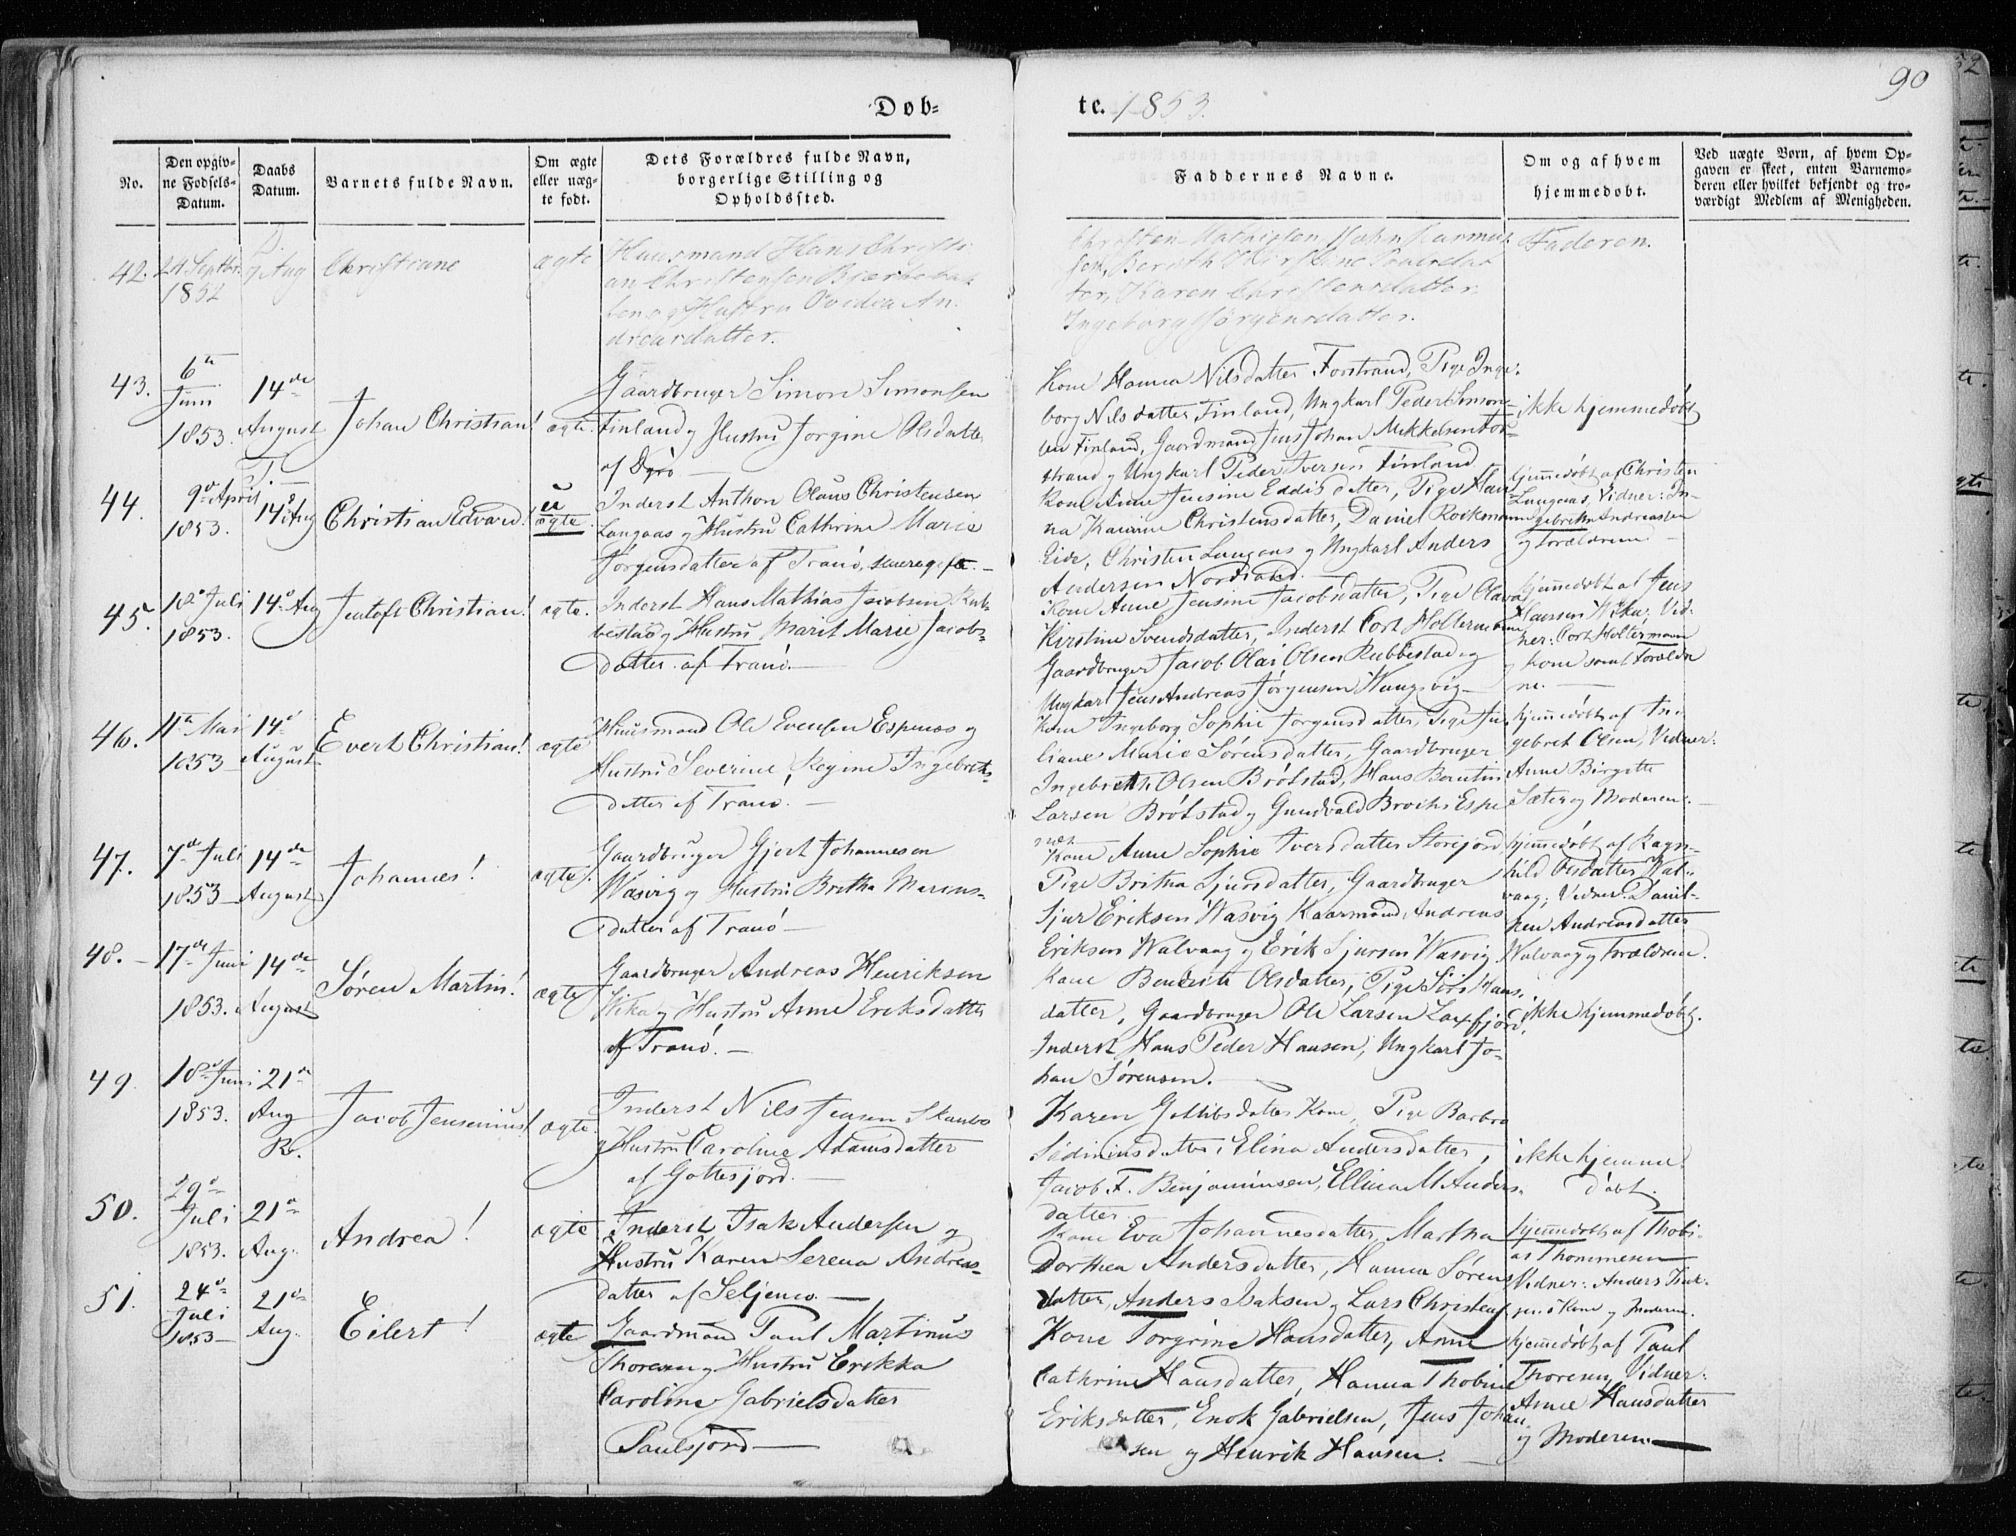 90
Døb-
te. 1853.
No.
Den opgiv-
ne Fødsels-
Datum.
Daabs
Datum.
Barnets fulde Navn.
Om ægte
eller uæg-
te født.
Dets Forældres fulde Navn,
borgerlige Stilling og
Opholdssted.
Faddernes Navne.
Om og af hvem
hjemmedøbt.
Ved uægte Børn, af hvem Op-
gaven er skeet, enten Barnemo-
deren eller hvilket bekjendt og tro-
værdigt Medlem af Menigheden.
42.
24 Septbr
1852
7 Aug
Christiane
ægte
Huusmand Hans Christi
an Christensen
og Hustru Ovidia An
dreasdatter.
Christen Mathisen
sen, Bereth Kirstine
ter, Karen Christensdatter,
Ingeborg Jørgensdatter.
Faderen.
43.
6te
Juni
1853.
14de
August
T.
Johan Christian!
ægte.
Gaardbruger Simon Simonsen
Finland og Hustru Jorgine Olsdatter
af Dyrö —
Kone Hanna Nilsdatter Forstrand, Pige Inge-
borg Nilsdatter Finland, Ungkarl Peder Simon-
sen Finland, Gaardmand Jens Johan Mikkelsen For-
strand og Ungkarl Peder Iversen Finland
ikke hjemmedøbt
44.
9de April
1853.
14 Aug
Christian Edvard!
u
ægte.
Inderst Anthon Olaus Christensen
Langaas og Hustru Cathrine Marie
Jørgensdatter af Tranö,
Kone Anne Jensine Eddisdatter, Pige Han-
na Karinne Christensdatter, Daniel
Eide, Christen Langaas og Ungkarl Anders
Andersen
hjemmedøbt af Christen
Langaas, Vidner: In-
gebrikt Andreassen
og Forældrene —
45.
10de Juli
1853.
14de Aug
Jentoft Christian!
ægte.
Inderst Hans Mathias Jacobsen Rub-
bestad og Hustru Marit Marie Jacobs-
datter af Tranö. —
Kone Anne Jensine Jacobsdatter, Pige Olava
Kirstine Svendsdatter, Inderst Cort Holtermann,
Gaardbruger Jacob Olai Olsen Rubbestad og
Ungkarl Jens Andreas Jørgensen Vangsvig —
hjemmedøbt af Jens
Hansen Vika; Vid-
ner: Cort Holtermann
og Kone samt Forældre
ne. —
46.
11te Mai
1853
14de
August
Evert Christian!
ægte
Huusmand Ole Evensen Espenes og
Hustru Severine Regine Ingebrikts-
datter af Tranö. —
Kone Ingeborg Sophie Jørgensdatter, Pige Ju-
liane Marie Sørensdatter, Gaardbruger
Ingebrikt Olsen Brøtstad, Hans Berntin
Larsen Brøtstad og Gundvald Brochs Espe
næs.
hjemmedøbt af In-
gebret Olsen, Vidner:
Anne Birgitte
Sæter og Moderen. —
47.
7de Juli
1853
14de
August
Johannes!
ægte.
Gaardbruger Gjert Johannesen
Wasvig og Hustru Britha Marens-
datter af Tranö —
Kone Anne Sophie Iversdatter Storfjord
Pige Britha Sjursdatter, Gaardbruger
Sjur Eriksen Wasvig Kaarmand, Andreas
Eriksen Walvaag og Erik Sjursen Wasvig
hjemmedøbt af Ragn-
hild Olsdatter Wal-
vaag; Vidner: Danil-
ken Andreasdatter
Walvaag og Forældrene.
48.
17de Juni
1853.
14de
August
Søren Martin!
ægte
Gaardbruger Andreas Henriksen
Vika og Hustru Anne Eriksdatter
af Tranö. —
Kone Bendicte Olsdatter, Pige Siri Hans-
datter, Gaardbruger Ole Larsen Laxfjord,
Inderst Hans Peder Hansen, Ungkarl Jo-
han Sørensen. —
ikke hjemmedøbt.
49
18de Juni
1853.
21de
Aug
R.
Jacob Jensenius!
ægte.
Inderst Nils Jensen Skanbo
og Hustru Caroline Adamsdatter
af Gottesjord. —
Karen Gottlibsdatter Kone, Pige Barbro
Elina Andersdatter,
Jacob F. Benjaminsen, Ellina M Anders-
datter.
ikke hjemme-
døbt.
50.
29de
Juli
1853.
21de
Aug.
Andrea!
ægte
Inderst Isak Andersen og
Hustru Karen Serena Andreas-
datter af Seljenes. —
Kone Eva Johannesdatter, Martha
Dorthea Andersdatter, Hanna Sørens-
datter, Anders Isaksen og Lars Christens
hjemmedøbt af Thobi-
as Thommesen
Vidner: Anders Isak-
sens Kone og Moderen.
51.
24de
Juli
1853 —
21de
Aug.
Eilert!
ægte
Gaardmand Paul Martinus
Thoresen og Hustru Erikka
Caroline Gabrielsdatter
Paulsjord —
Kone Torgrine Hansdatter, Anne
Cathrine Hansdatter, Hanna Thobine
Eriksdatter, Enok Gabrielsen, Jens Johan
sen og Henrik Hansen.
hjemmedøbt af Paul
Thoresen, Vidner:
Anne Hansdatter
og Moderen. —